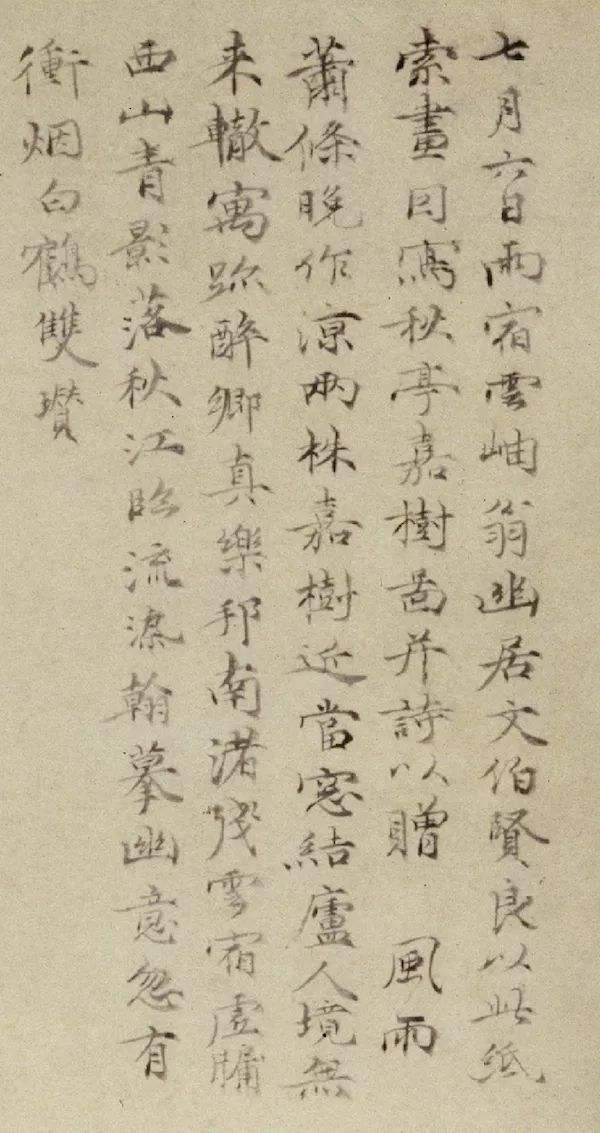 七月六日雨宿雲岫翁幽居文伯賢良以此紙
索畫因寫秋亭嘉樹圖并詩以贈　風雨
蕭條晚作涼兩株嘉樹近當窓結廬人境無
来轍寓跡醉鄉真樂邦南渚殘雲宿虛牖
西山青影落秋江臨流染翰摹幽意忽有
衝烟白鶴雙 瓚